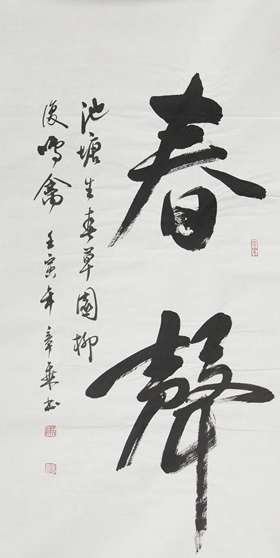 春聲
池塘生春草園柳
變鳴禽 壬寅年 章燕書